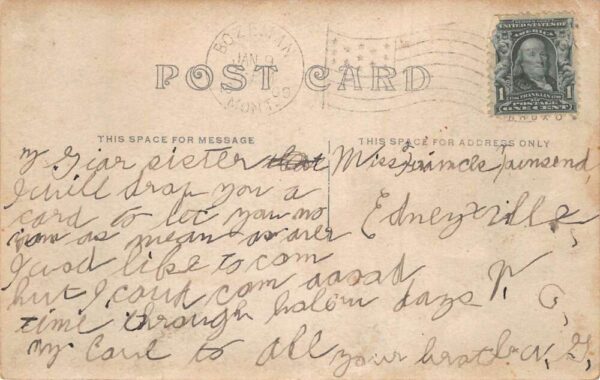 BOZEMAN
JAN 9
09
MONT.
UNITED STATES OF
AMERICA
1 1
FRANKLIN
POSTAGE
ONE CENT
POST CARD
THIS SPACE FOR MESSAGE
THIS SPACE FOR ADDRESS ONLY
my Giar sister
I will drap you a
card to let you no
iam as mean as aver
I wod like to com
but I coud com
time through holow days
my love to all your brother N, G,
Miss Townsend,
Edneyville,
N, C,